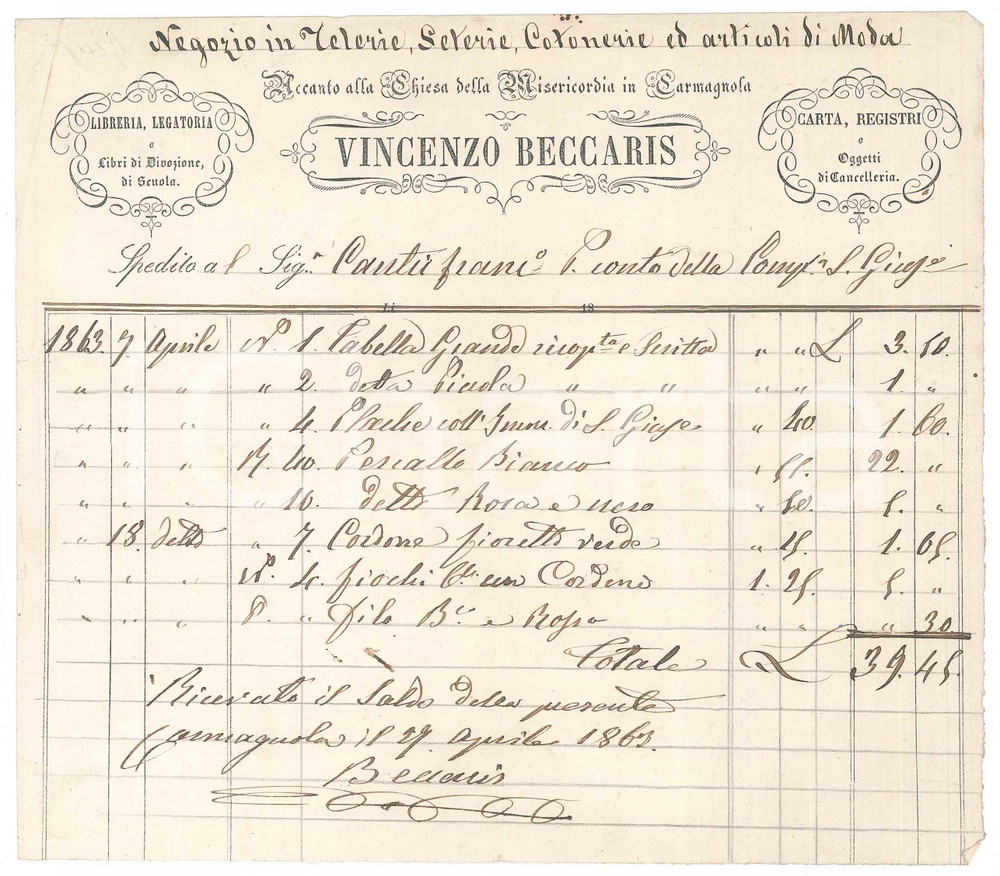 Negozio in Telerie, Seterie, Cotonerie ed articoli di Moda
Accanto alla Chiesa della Misericordia in Carmagnola
LIBRERIA, LEGATORIA
e
Libri di Divozione,
di Scuola.
VINCENZO BECCARIS
CARTA, REGISTRI
e
Oggetti
di Cancelleria.
Spedito al Sig.r Cantù Franco P. conto della Comp.a S. Giuse
Li 18
1863. 7 Aprile N. 1. Tabella Grande ricop.ta e Scritta " " L 3. 50.
" " " " 2. detta Piccola " " " " 1. "
" " " " 4. Plache coll' Imm. di S. Giuse " 40 1. 60.
" " " M. 40. Percallo Bianco " 55. 22. "
" " " " 10. detto Rosa e nero " 50. 5. "
" 18 detto " 7. Cordone fioretto verde " 15. 1. 05.
" " " N. 4. fiochi con Cordone 1. 25. 5. "
" " " P. " filo B. e Rosso " " " 30
Totale L 39. 45.
Ricevuto il Saldo della presente
Carmagnola il 27 Aprile 1863.
Beccaris